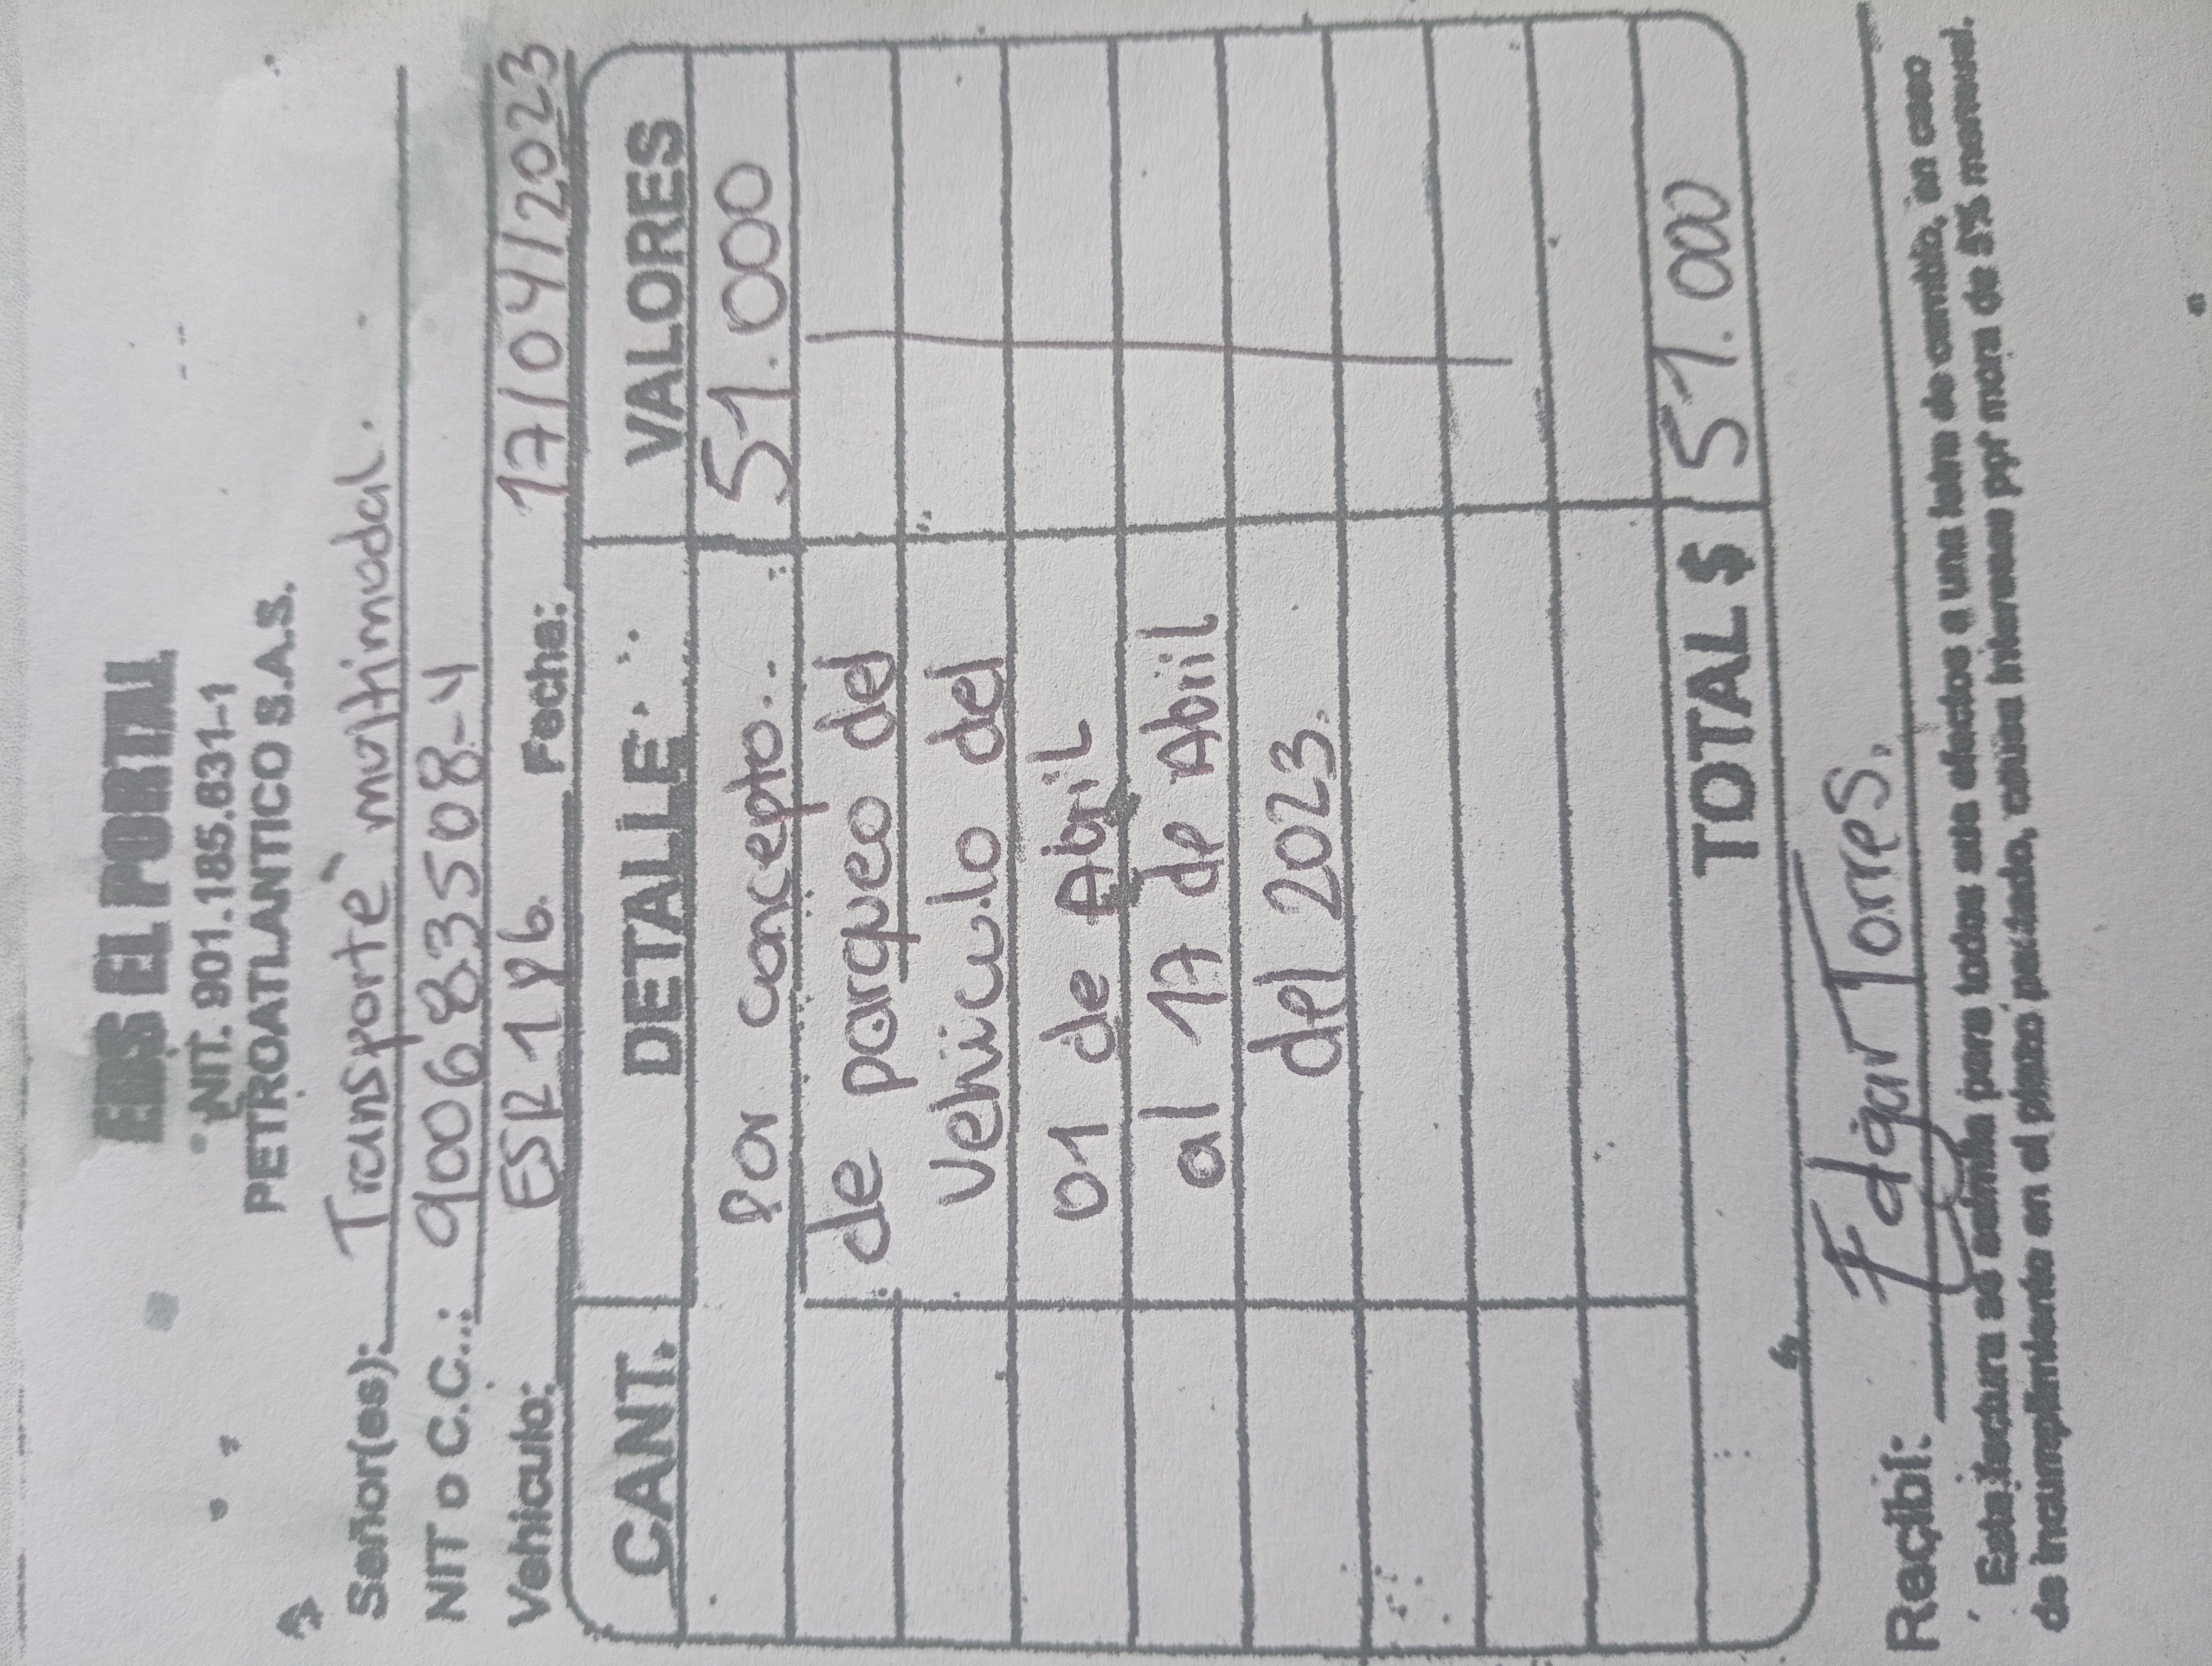 EDS EL PORTAL
NIT. 901.185.631-1
PETROATLANTICO S.A.S.
Señor(es): Transporte multimodal.
NIT o C.C.: 900683508-4
Vehiculo: ESR 196. Fecha: 17/04/2023
CANT. DETALLE VALORES
Por concepto 51.000
de parqueo del
Vehiculo del
01 de Abril
al 17 de Abril
del 2023.
TOTAL $ 51.000
Recibí: Edgar Torres.
Esta factura se asimila para todos sus efectos a una letra de cambio, en caso
de incumplimiento en el plazo pactado, causa intereses por mora de 5% mensual.